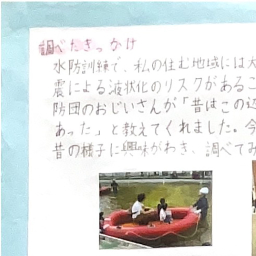 調べたきっかけ
水防訓練で、私の住む地域には大
震による液状化のリスクがあるこ
防団のおじいさんが「昔はこの辺
あった」と教えてくれました。今
昔の様子に興味がわき、調べてみ